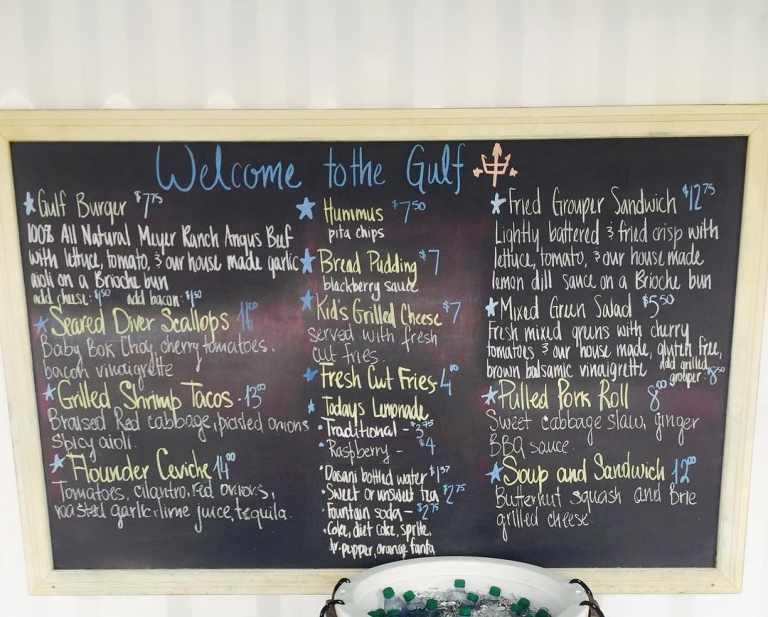 Welcome to the Gulf
Gulf Burger $7.75
100% All Natural Meyer Ranch Angus Beef
with lettuce, tomato, & our house made garlic
aioli on a Brioche bun
add cheese: $1.50 add bacon: $1.50
Seared Diver Scallops 16.00
Baby Bok Choy, cherry tomatoes.
bacon vinaigrette
Grilled Shrimp Tacos. 13.00
Braised Red cabbage, pickled onions
Spicy aioli.
Flounder Ceviche 14.00
Tomatoes, cilantro, red onions,
roasted garlic, lime juice, tequila.
Hummus $7.50
pita chips
Bread Pudding $7
blackberry sauce
Kid's Grilled Cheese $7
served with fresh
cut fries.
Fresh Cut Fries 4.00
Today's Lemonade
• Traditional - $3.75
• Raspberry - $4
• Dasani bottled water $1.57
• Sweet or unsweet tea $2.75
• Fountain soda - $2.75
• Coke, diet coke, sprite,
dr. pepper, orange fanta
Fried Grouper Sandwich $12.75
Lightly battered & fried crisp with
lettuce, tomato, & our house made
lemon dill sauce on a Brioche bun
Mixed Green Salad $5.50
Fresh mixed greens with cherry
tomatoes & our house made, gluten free,
brown balsamic vinaigrette add grilled
grouper: $8.50
Pulled Pork Roll 8.00
Sweet cabbage slaw, ginger
BBQ sauce
Soup and Sandwich 12.00
Butternut squash and Brie
grilled cheese.